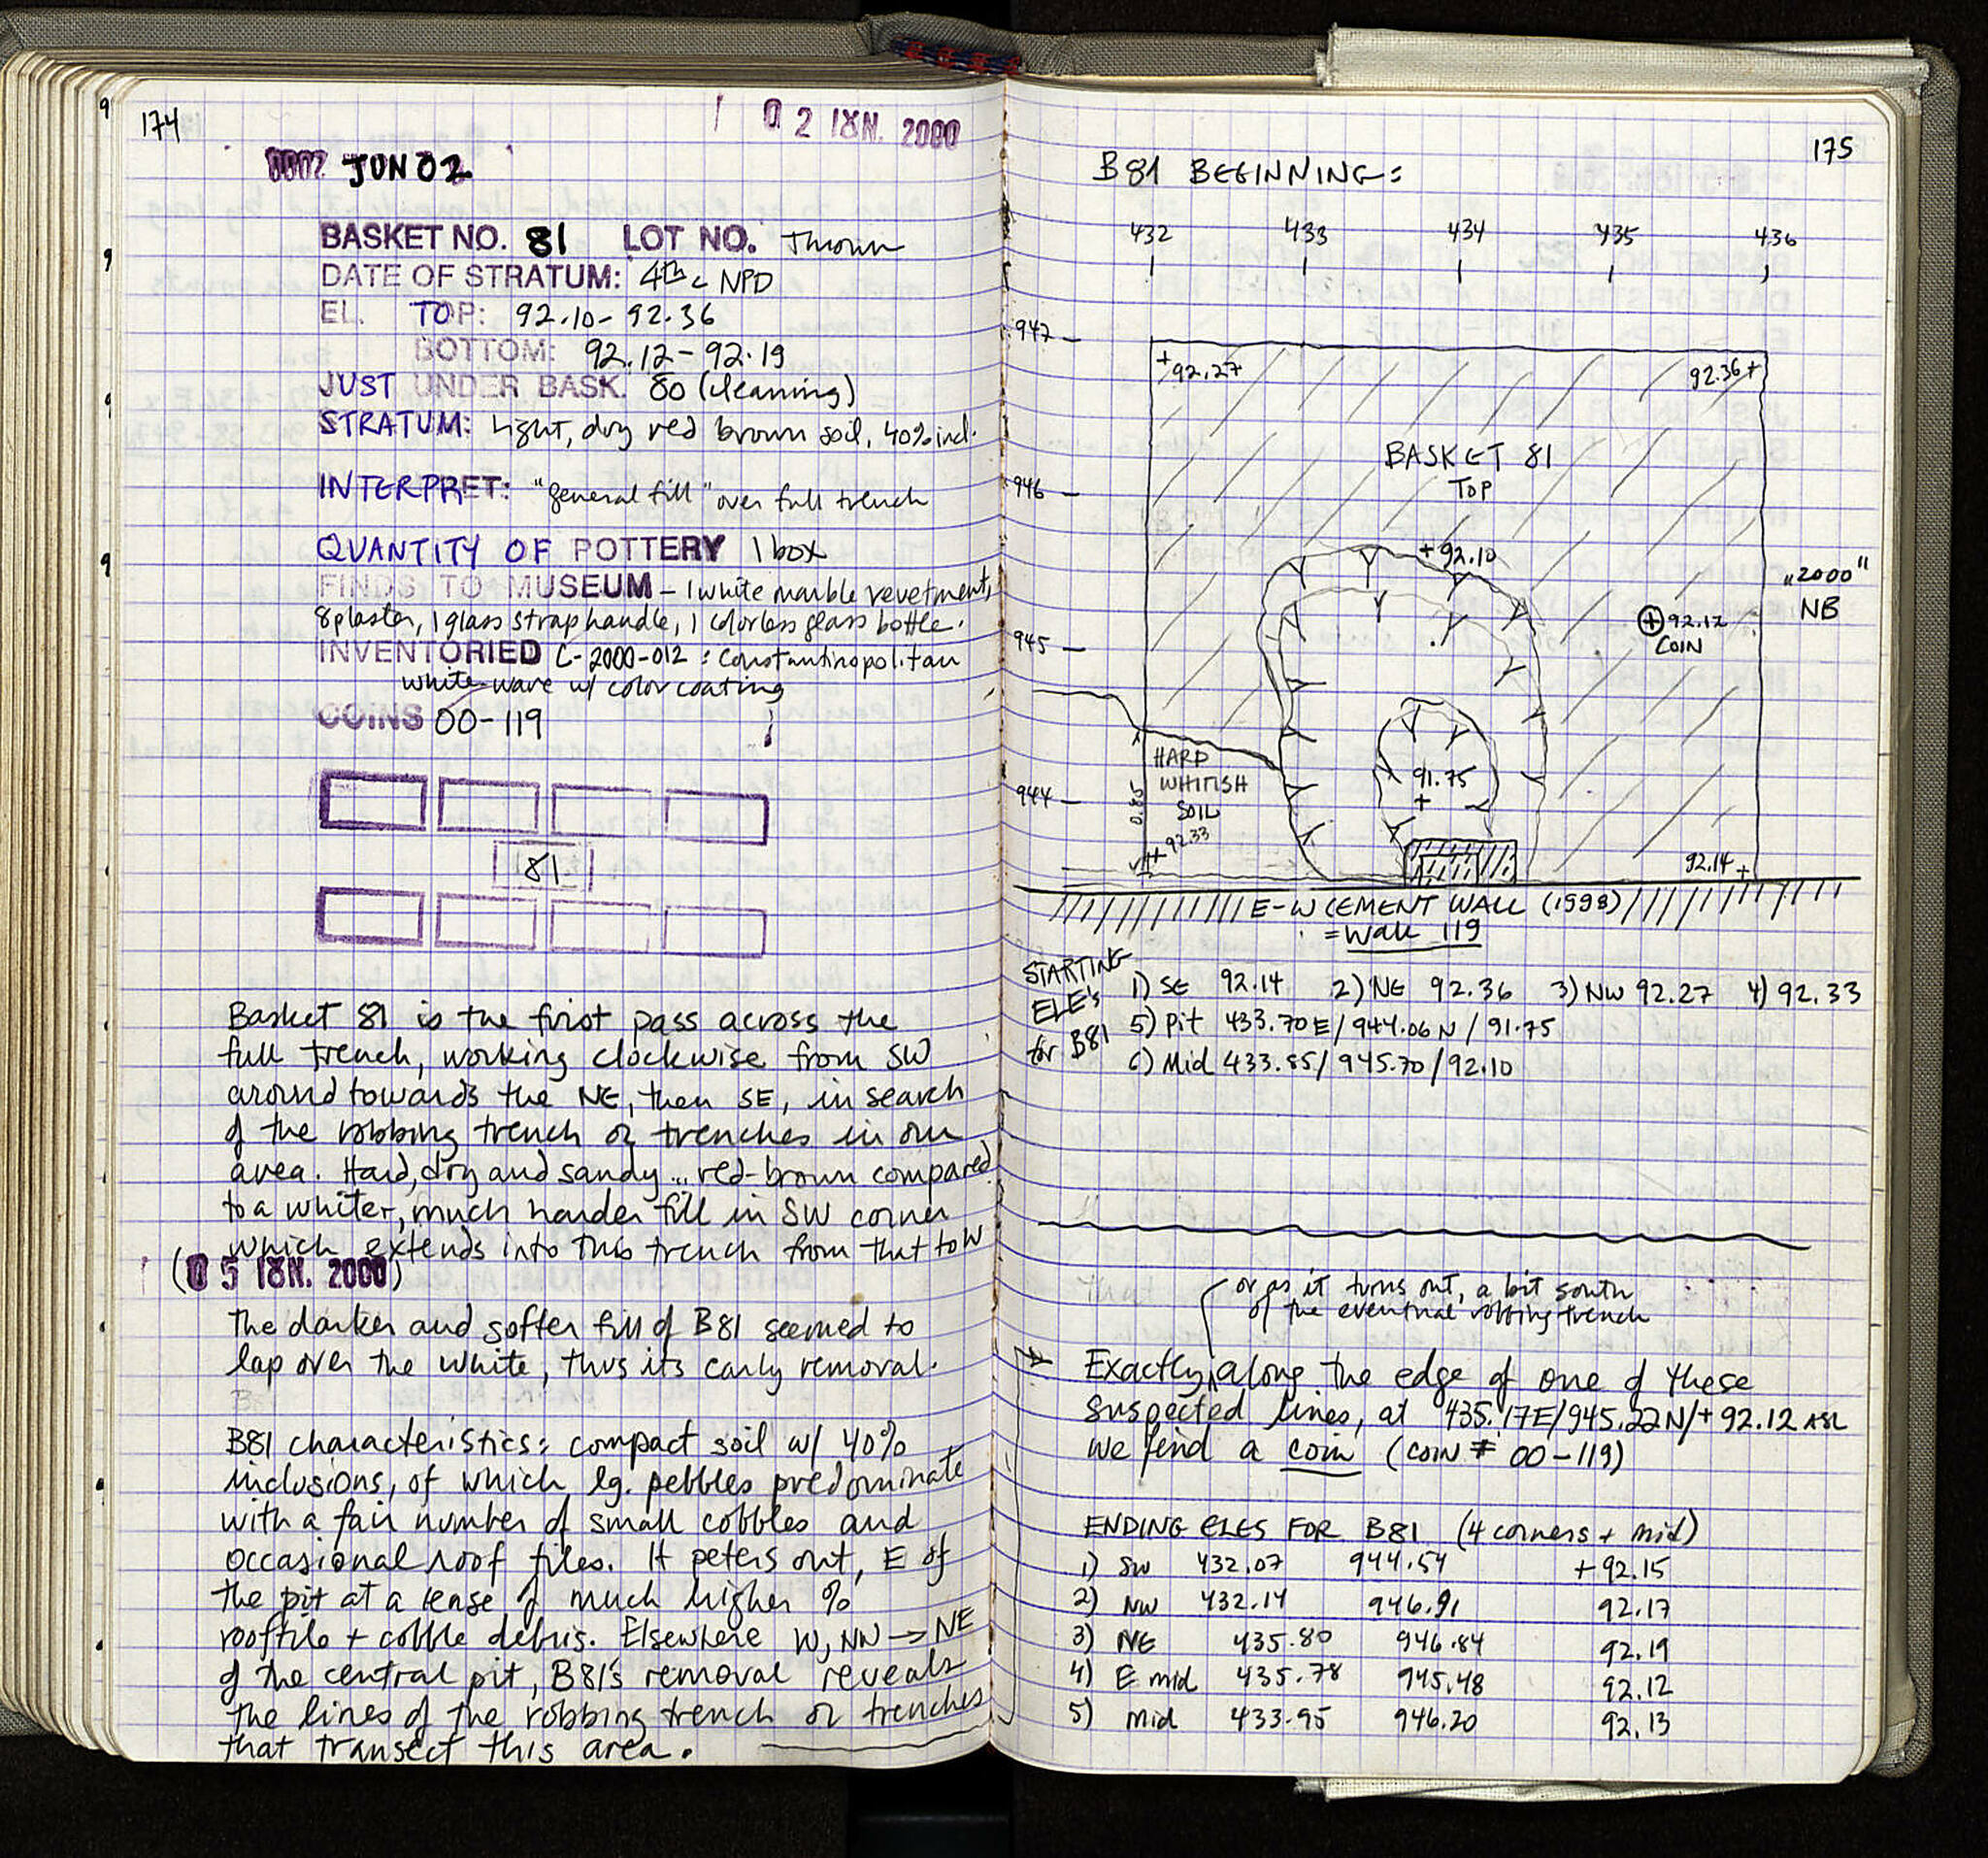 174
02 ΙΟΥΝ. 2000
JUN 02
BASKET NO. 81 LOT NO. Thrown
DATE OF STRATUM: 4th c NPD
EL. TOP: 92.10 - 92.36
BOTTOM: 92.12 - 92.19
JUST UNDER BASK. 80 (cleaning)
STRATUM: light, dry red brown soil, 40% incl.
INTERPRET: "general fill" over full trench
QUANTITY OF POTTERY 1 box
FINDS TO MUSEUM - 1 white marble revetment,
8 plaster, 1 glass strap handle, 1 colorless glass bottle.
INVENTORIED C-2000-012 : Constantinopolitan
white-ware w/ color coating
COINS 00-119
81
Basket 81 is the first pass across the
full trench, working clockwise from SW
around towards the NE, then SE, in search
of the robbing trench or trenches in our
area. Hard, dry and sandy... red-brown compared
to a whiter, much harder fill in SW corner
which extends into this trench from that to W
(05 ΙΟΥΝ. 2000)
The darker and softer fill of B81 seemed to
lap over the white, thus its early removal.
B81 characteristics: compact soil w/ 40%
inclusions, of which lg. pebbles predominate
with a fair number of small cobbles and
occasional roof tiles. It peters out, E of
the pit at a lense of much higher %
rooftile + cobble debris. Elsewhere W, NW → NE
of the central pit, B81's removal reveals
the lines of the robbing trench or trenches
that transect this area.
175
B81 BEGINNING:
432 433 434 435 436
947
+92.27 92.36+
BASKET 81
TOP
946
+92.10
"2000"
NB
+92.12
COIN
945
HARD
WHITISH
SOIL
0.85
91.75
+
944
+92.33
92.14+
E-W CEMENT WALL (1998)
= Wall 119
STARTING
ELE's
for B81
1) SE 92.14 2) NE 92.36 3) NW 92.27 4) 92.33
5) Pit 433.70E/944.06N/91.75
6) Mid 433.85/945.70/92.10
or as it turns out, a bit south
of the eventual robbing trench
Exactly, along the edge of one of these
suspected lines, at 435.17E/945.22N/+92.12 ASL
we find a coin (coin # 00-119)
ENDING ELES FOR B81 (4 corners + mid)
1) SW 432.07 944.54 +92.15
2) NW 432.14 946.91 92.17
3) NE 435.80 946.84 92.19
4) E mid 435.78 945.48 92.12
5) mid 433.95 946.20 92.13